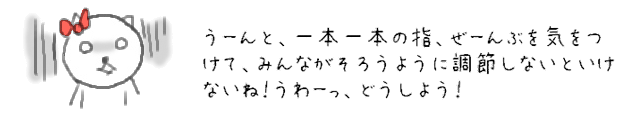 うーんと、一本一本の指、ぜーんぶを気をつ
けて、みんながそろうように調節しないといけ
ないね！うわーっ、どうしよう！